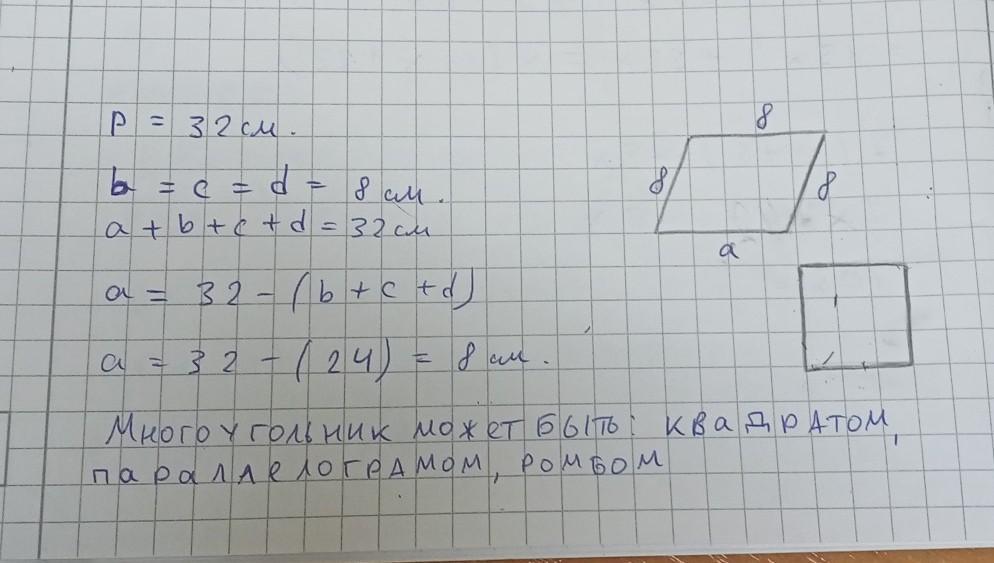 P = 32 см.
b = c = d = 8 см.
a + b + c + d = 32 см
a = 32 - (b + c + d)
a = 32 - (24) = 8 см.
Многоугольник может быть: квадратом,
параллелограмом, ромбом
8
8
8
a